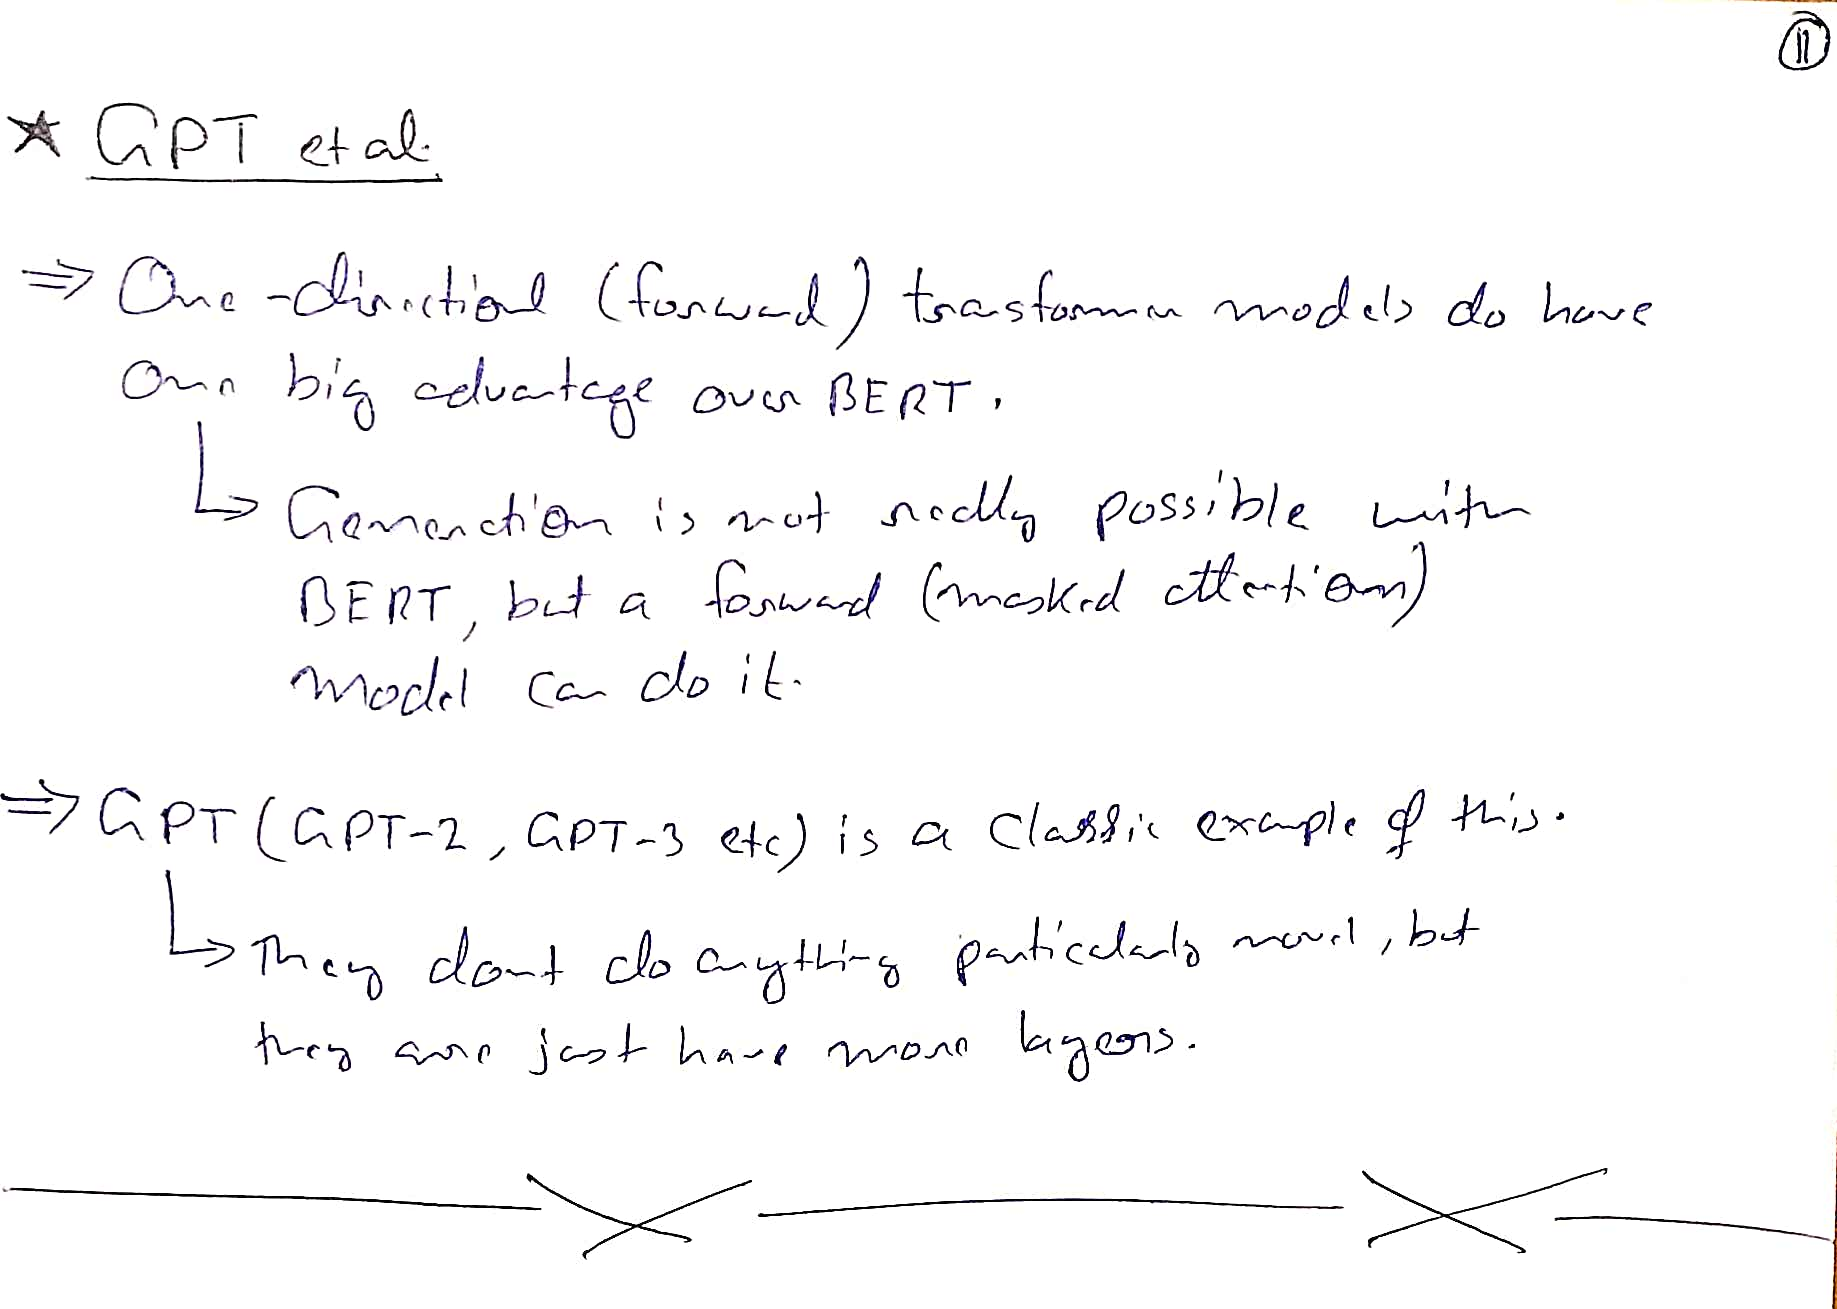 11
★ GPT et al.
⇒ One-directional (forward) transformer models do have
one big advantage over BERT.
↳ Generation is not really possible with
BERT, but a forward (masked attention)
model can do it.
⇒ GPT (GPT-2, GPT-3 etc) is a classic example of this.
↳ They don't do anything particularly novel, but
they are just have more layers.